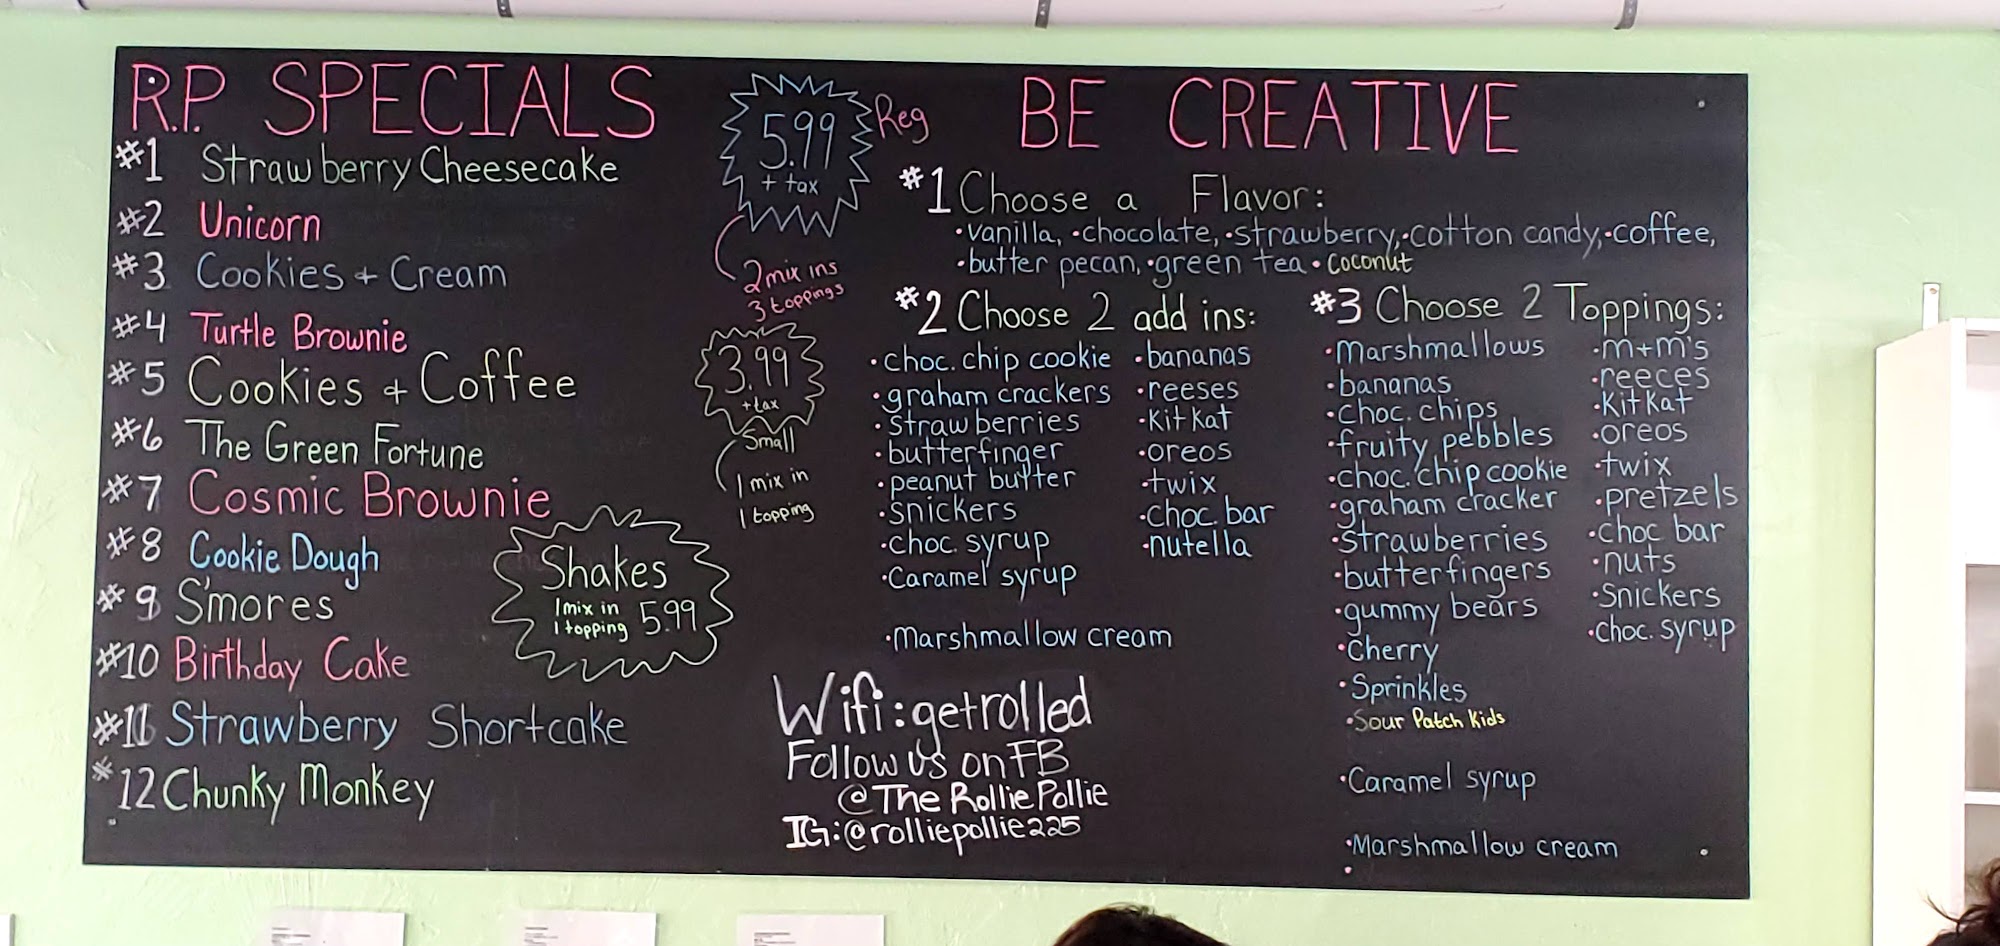 R.P. SPECIALS
#1 Strawberry Cheesecake
#2 Unicorn
#3 Cookies + Cream
#4 Turtle Brownie
#5 Cookies + Coffee
#6 The Green Fortune
#7 Cosmic Brownie
#8 Cookie Dough
#9 S'mores
#10 Birthday Cake
#11 Strawberry Shortcake
#12 Chunky Monkey
5.99 Reg
+ tax
2 mix ins
3 toppings
3.99
+tax
Small
1 mix in
1 topping
Shakes
1 mix in
1 topping 5.99
BE CREATIVE
#1 Choose a Flavor:
•vanilla, •chocolate, •strawberry, •cotton candy, •coffee,
•butter pecan, •green tea •coconut
#2 Choose 2 add ins:
•choc. chip cookie
•graham crackers
•strawberries
•butterfinger
•peanut butter
•snickers
•choc. syrup
•Caramel syrup
•Marshmallow cream
•bananas
•reeses
•KitKat
•oreos
•twix
•choc. bar
•nutella
#3 Choose 2 Toppings:
•Marshmallows
•bananas
•choc. chips
•fruity pebbles
•choc. chip cookie
•graham cracker
•strawberries
•butterfingers
•gummy bears
•Cherry
•Sprinkles
•Sour Patch Kids
•Caramel syrup
•Marshmallow cream
•m+m's
•reeces
•KitKat
•oreos
•twix
•pretzels
•choc bar
•nuts
•Snickers
•choc. syrup
Wifi: getrolled
Follow us on FB
@The RolliePollie
IG: @rolliepollie225